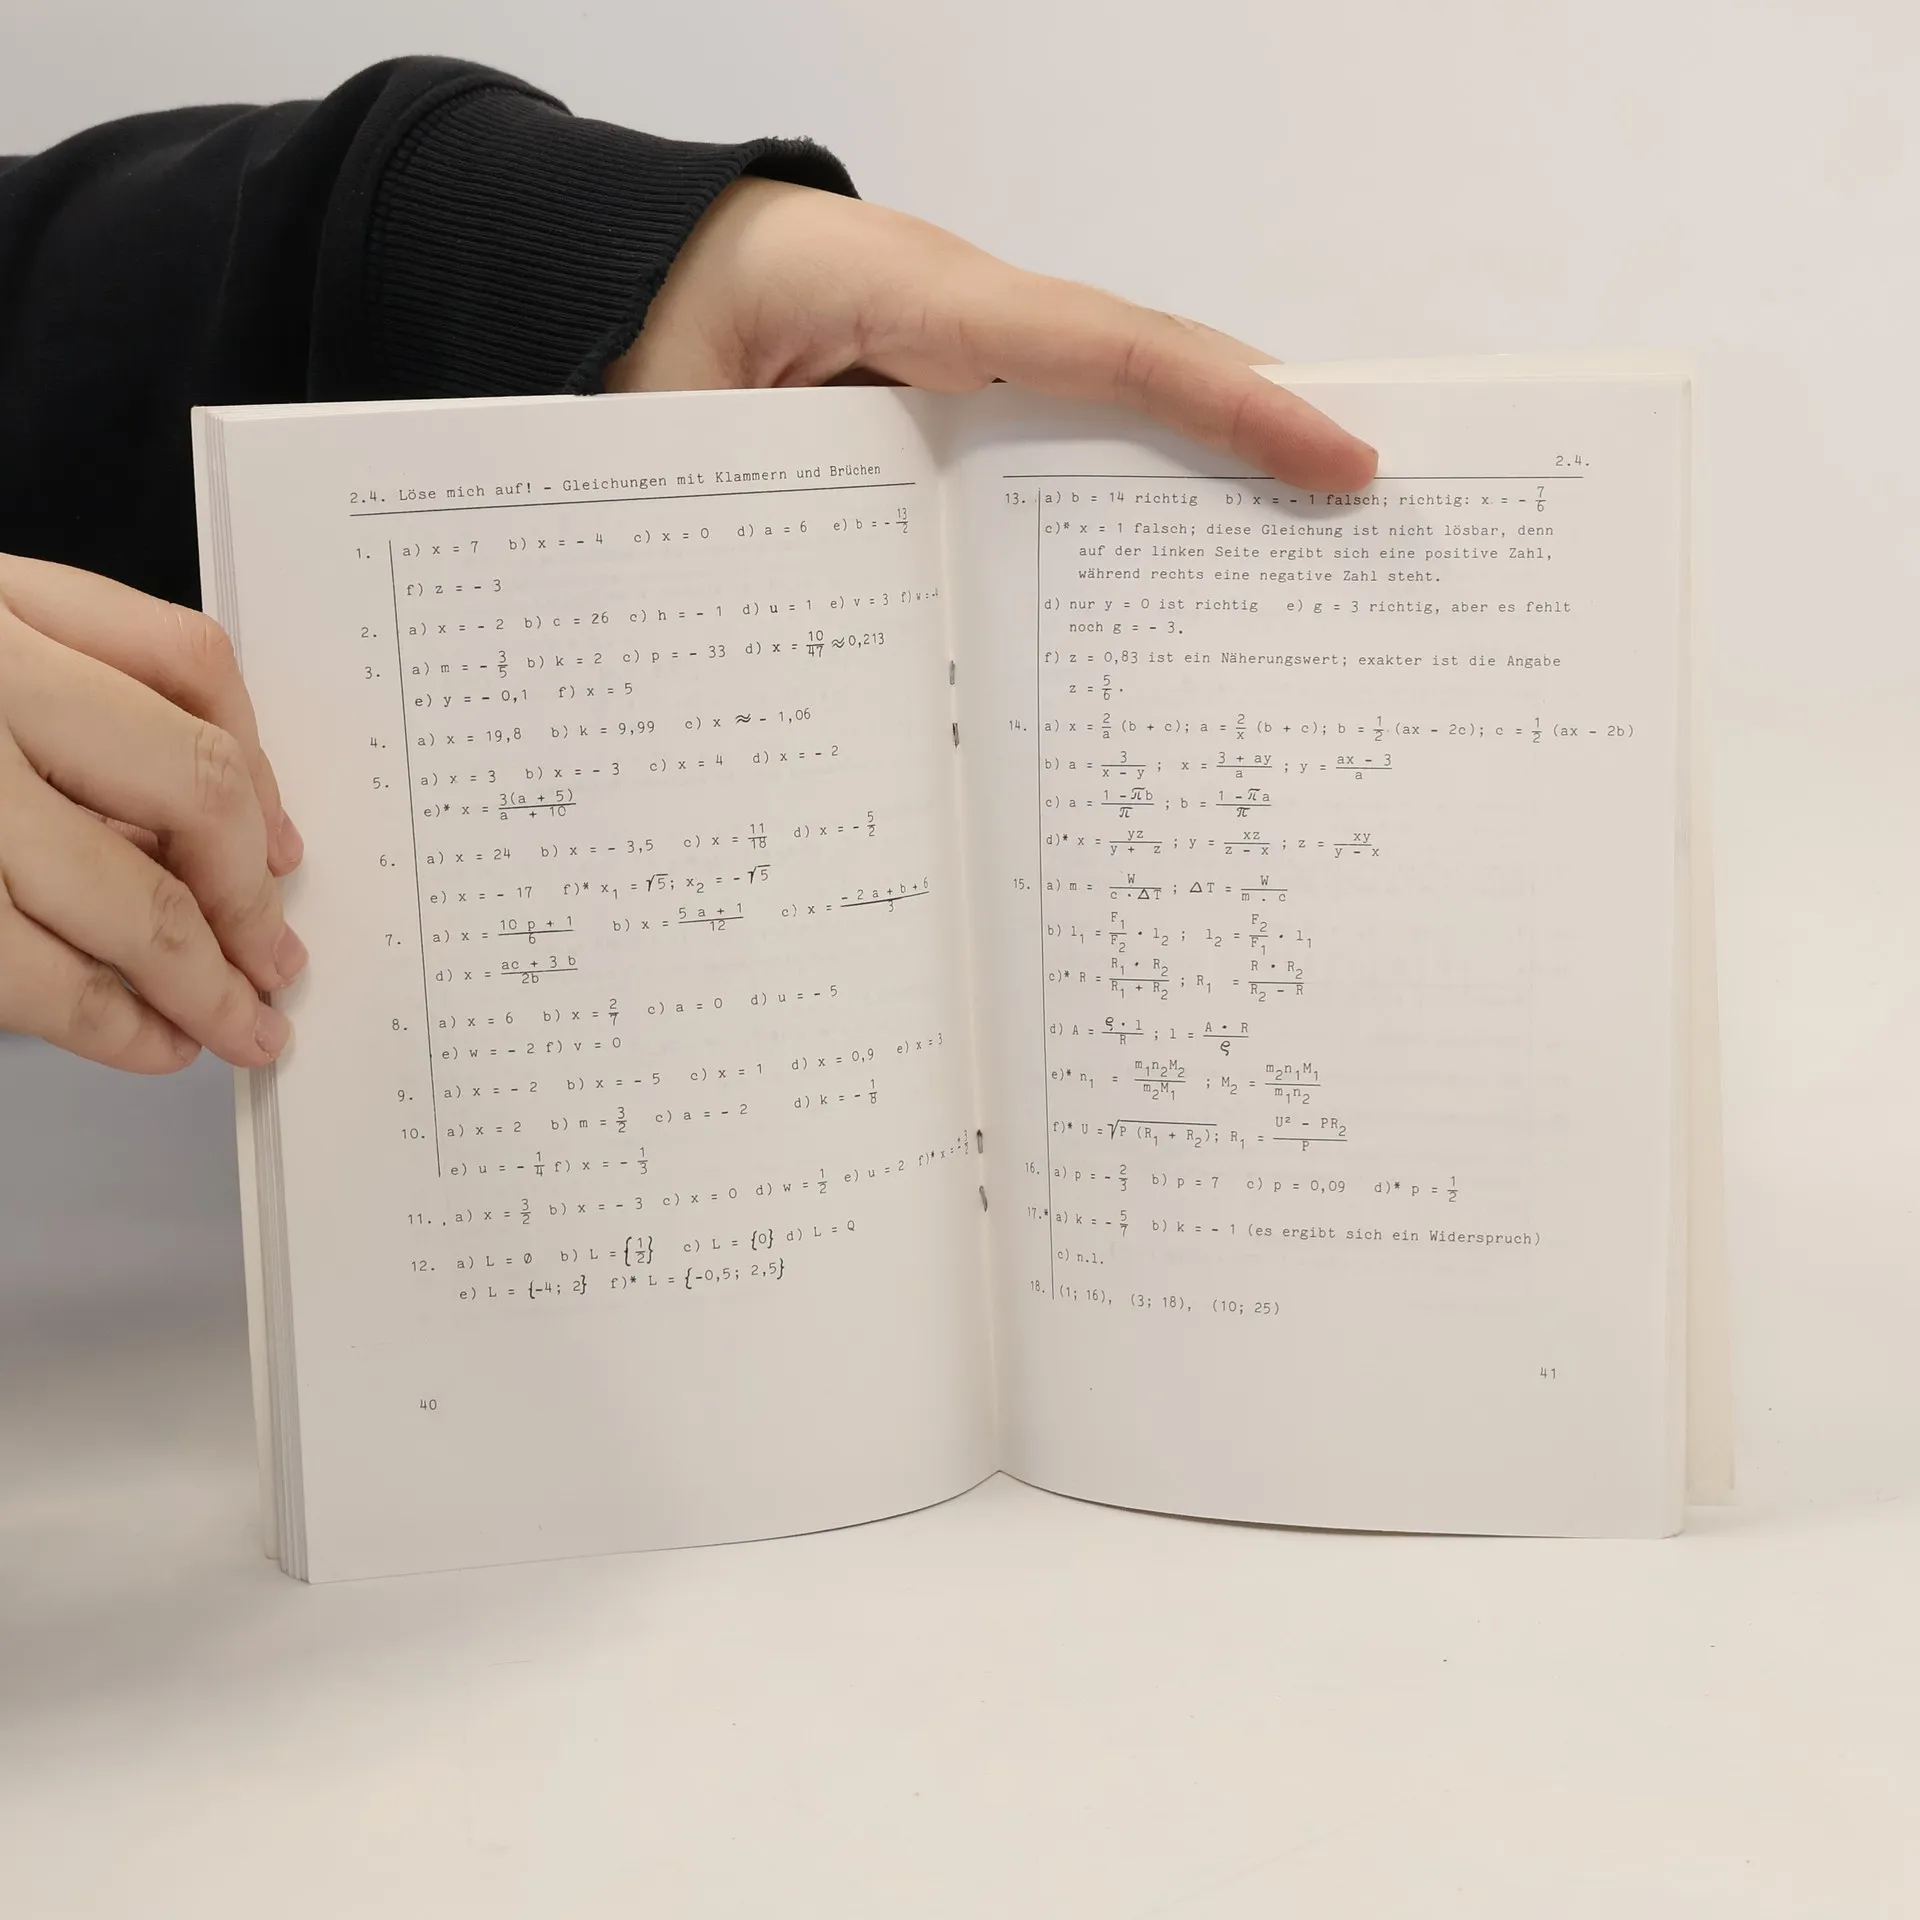 2.4. Löse mich auf! - Gleichungen mit Klammern und Brüchen
1. a) x = 7 b) x = - 4 c) x = 0 d) a = 6 e) b = - 13/2
f) z = - 3
2. a) x = - 2 b) c = 26 c) h = - 1 d) u = 1 e) v = 3 f) w =
3. a) m = - 3/5 b) k = 2 c) p = - 33 d) x = 10/47 ≈ 0,213
e) y = - 0,1 f) x = 5
4. a) x = 19,8 b) k = 9,99 c) x ≈ - 1,06
5. a) x = 3 b) x = - 3 c) x = 4 d) x = - 2
e)* x = 3(a + 5)/a + 10
6. a) x = 24 b) x = - 3,5 c) x = 11/18 d) x = - 5/2
e) x = - 17 f)* x₁ = √5; x₂ = - √5
7. a) x = 10 p + 1/6 b) x = 5 a + 1/12 c) x = - 2 a + b + 6/3
d) x = ac + 3 b/2b
8. a) x = 6 b) x = 2/7 c) a = 0 d) u = - 5
e) w = - 2 f) v = 0
9. a) x = - 2 b) x = - 5 c) x = 1 d) x = 0,9 e) x = 3
10. a) x = 2 b) m = 3/2 c) a = - 2 d) k = - 1/8
e) u = - 1/4 f) x = - 1/3
11. a) x = 3/2 b) x = - 3 c) x = 0 d) w = 1/2 e) u = 2 f)* x =
12. a) L = ∅ b) L = {1/2} c) L = {0} d) L = Q
e) L = {-4; 2} f)* L = {-0,5; 2,5}
40
2.4.
13. a) b = 14 richtig b) x = - 1 falsch; richtig: x = - 7/6
c)* x = 1 falsch; diese Gleichung ist nicht lösbar, denn
auf der linken Seite ergibt sich eine positive Zahl,
während rechts eine negative Zahl steht.
d) nur y = 0 ist richtig e) g = 3 richtig, aber es fehlt
noch g = - 3.
f) z = 0,83 ist ein Näherungswert; exakter ist die Angabe
z = 5/6 .
14. a) x = 2/a (b + c); a = 2/x (b + c); b = 1/2 (ax - 2c); c = 1/2 (ax - 2b)
b) a = 3/x - y ; x = 3 + ay/a ; y = ax - 3/a
c) a = 1 - πb/π ; b = 1 - πa/π
d)* x = yz/y + z ; y = xz/z - x ; z = xy/y - x
15. a) m = W/c · ΔT ; ΔT = W/m . c
b) l₁ = F₁/F₂ · l₂ ; l₂ = F₂/F₁ · l₁
c)* R = R₁ · R₂/R₁ + R₂ ; R₁ = R · R₂/R₂ - R
d) A = ϱ · l/R ; l = A · R/ϱ
e)* n₁ = m₁n₂M₂/m₂M₁ ; M₂ = m₂n₁M₁/m₁n₂
f)* U = √P (R₁ + R₂); R₁ = U² - PR₂/P
16. a) p = - 2/3 b) p = 7 c) p = 0,09 d)* p = 1/2
17.* a) k = - 5/7 b) k = - 1 (es ergibt sich ein Widerspruch)
c) n.l.
18. (1; 16), (3; 18), (10; 25)
41